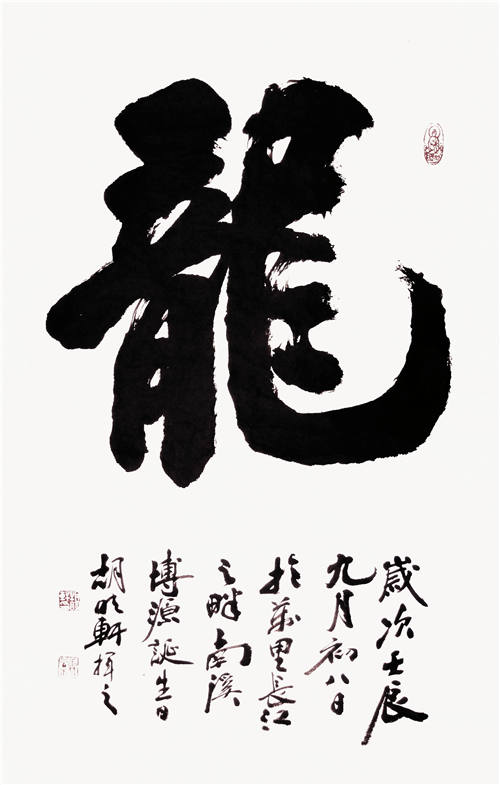 龍
歲次壬辰
九月初八日
於萬里長江
之畔南溪
博源誕生日
胡明軒揮之